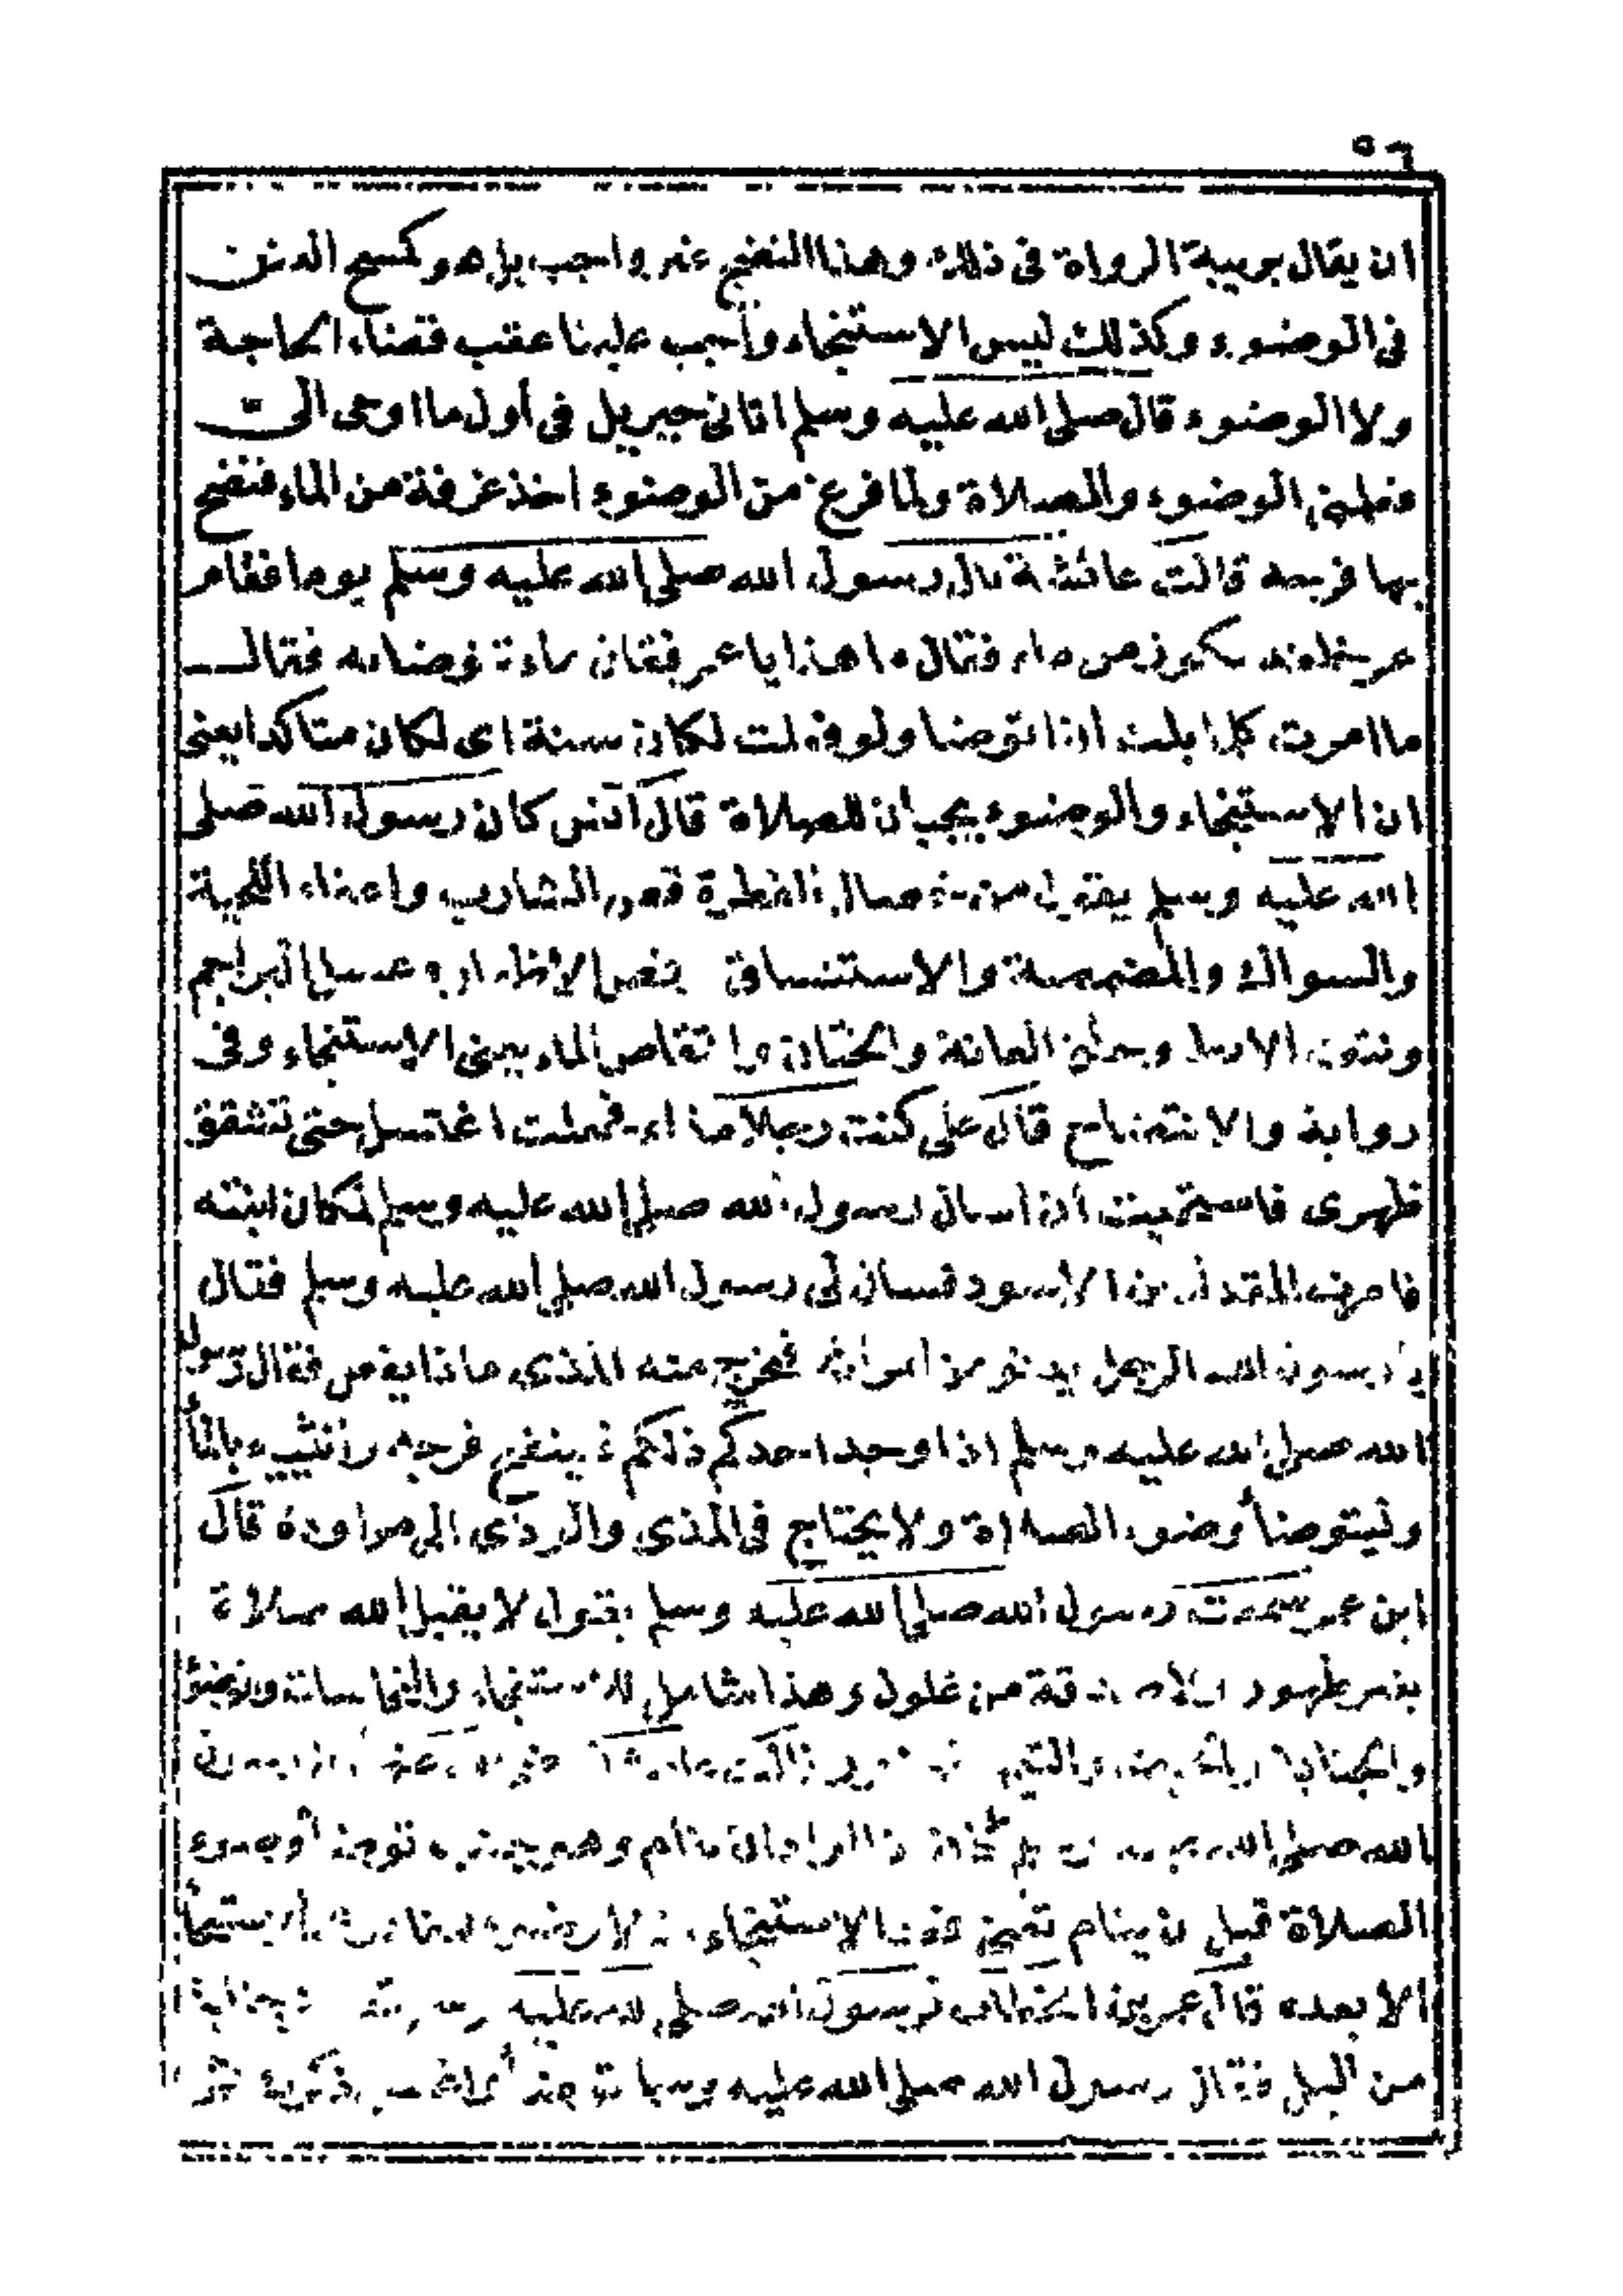 ٥٦
ان يقال بريبة الرواة فى ذلك وهذا النضح غير واجب بل هو كمسح الدنن
فى الوضوء وكذلك ليس الاستنجاء واجب علينا عقب قضاء الحاجة
ولا الوضوء قال صلى الله عليه وسلم اتانى جبريل فى أول ما اوحى الى
فعلمنى الوضوء والصلاة ولما فرغ من الوضوء اخذ غرفة من الماء فنضح
بها فرجه قالت عائشة بال رسول الله صلى الله عليه وسلم يوما فقام
عمر خلفه بكوز من ماء فقال ما هذا يا عمر فقال ماء توضا به فقال
ما امرت كلما بلت أن اتوضا ولو فعلت لكان سنة اى لكان متاكدا يعنى
ان الاستنجاء والوضوء يجبان للصلاة قال أنس كان رسول الله صلى
الله عليه وسلم يقول من خصال الفطرة قص الشارب واعفاء اللحية
والسواك والمضمضة والاستنشاق وقص الاظفار وغسل البراجم
ونتف الابط وحلق العانة والختان وانتقاص الماء يعنى الاستنجاء وفى
رواية والانتضاح قال على كنت رجلا مذاء فجعلت اغتسل حتى تشقق
ظهرى فاستحييت أن اسال رسول الله صلى الله عليه وسلم لمكان ابنته
فامرت المقداد بن الاسود فسال لى رسول الله صلى الله عليه وسلم فقال
يا رسول الله الرجل يدنو من امراته فيخرج منه المذى ماذا يفعل فقال رسول
الله صلى الله عليه وسلم اذا وجد احدكم ذلكم فلينضح فرجه وانثييه بالماء
وليتوضأ وضوء الصلاة ولا يحتاج فى المذى والودى الى مراودة قال
ابن عمر سمعت رسول الله صلى الله عليه وسلم يقول لا يقبل الله صلاة
بغير طهور ولا صدقة من غلول وهذا شامل للاستنجاء والنجاسات والوضوء
والجنابة والتيمم قالت عائشة
الله صلى الله عليه وسلم اذا اراد ان ينام وهو جنب توضأ وضوء
الصلاة قبل ان ينام تعنى الاستنجاء
الا بعده قال عمر بن الخطاب لرسول الله صلى الله عليه وسلم
من الليل فقال رسول الله صلى الله عليه وسلم توضأ واغسل ذكرك ثم